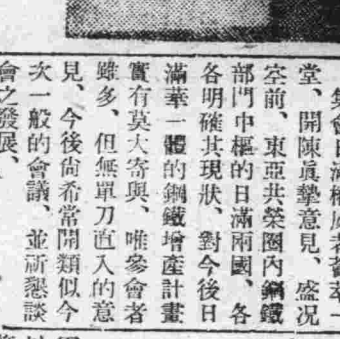 集會日滿權威者薈萃一
堂、開陳眞摯意見、盛况
空前、東亞共榮圈內鋼鐵
部門中樞的日滿兩國、各
各明確其現狀、對今後日
滿華一體的鋼鐵增產計畫
實有莫大寄與、唯參會者
雖多、但無單刀直入的意
見、今後尙希常開類似今
次一般的會議、並祈懇談
會之發展、